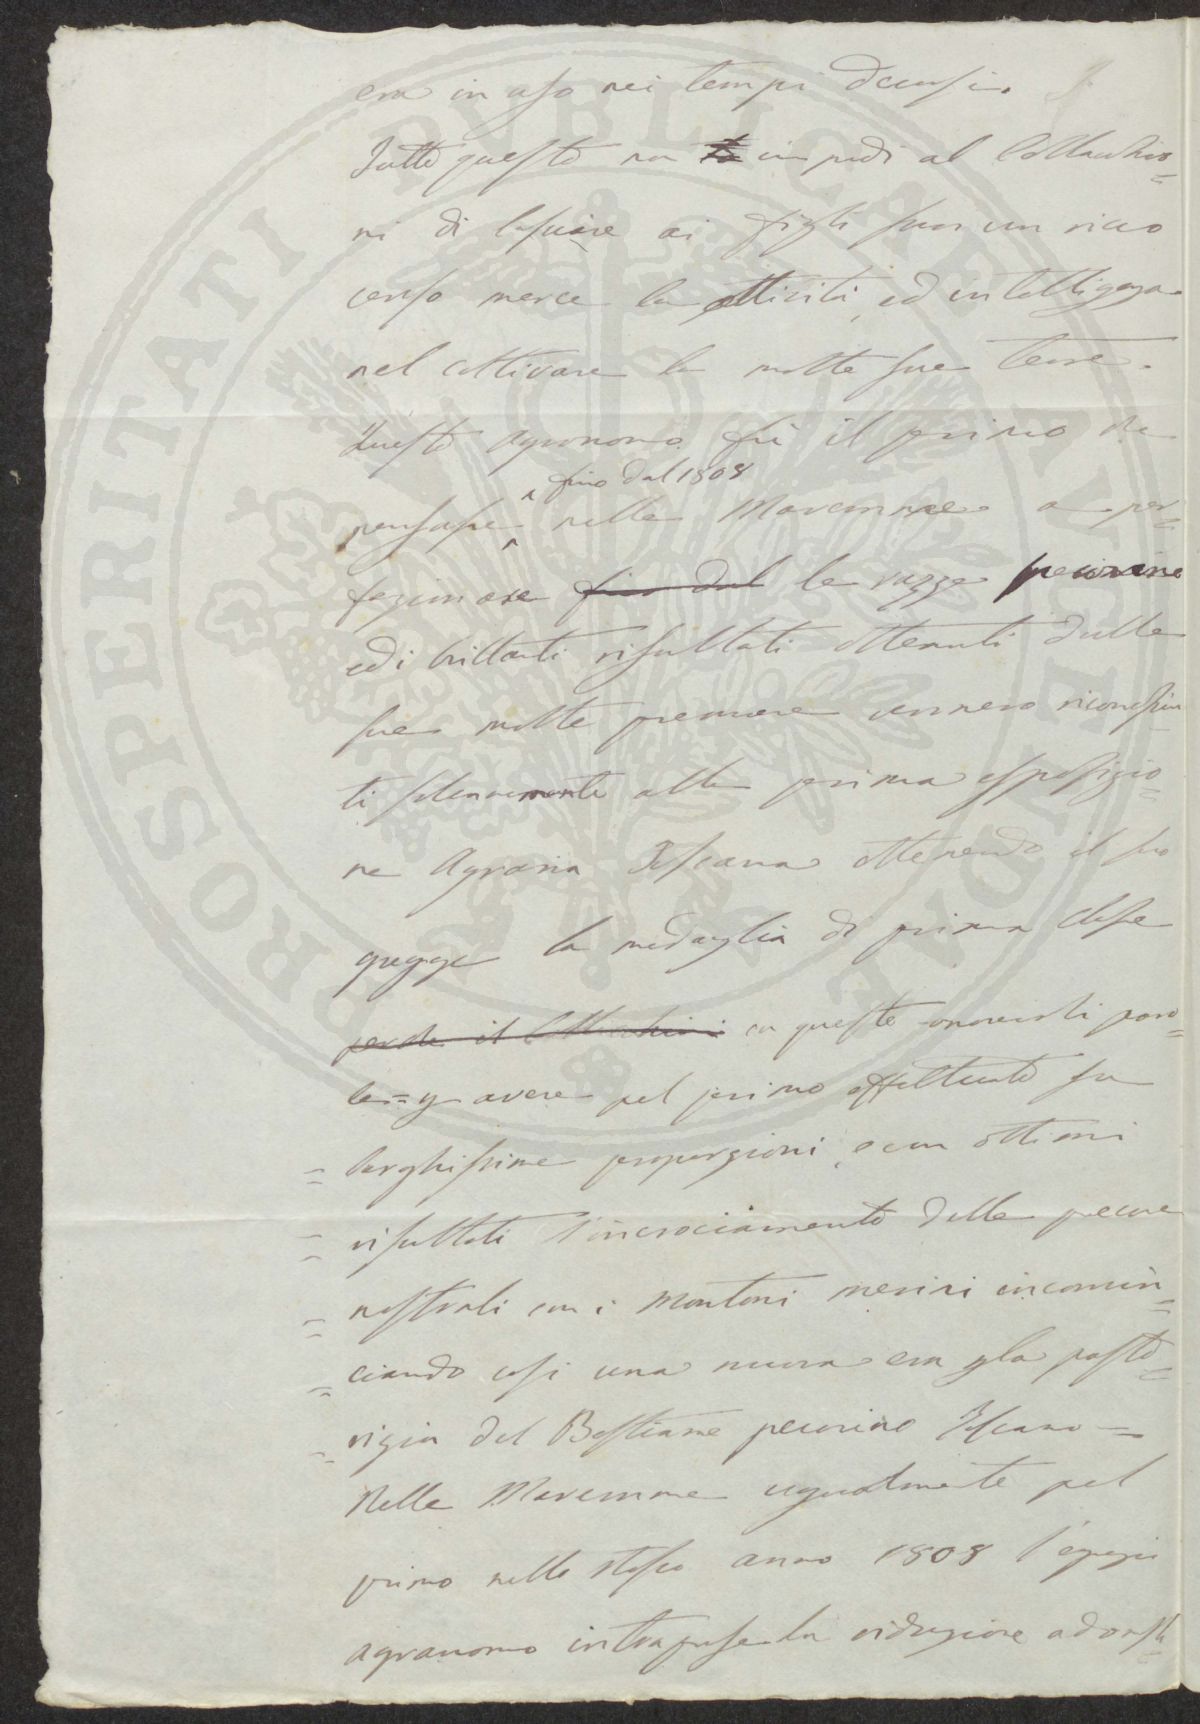 era in uso nei tempi decorsi.
Tutto questo non impedì al Collacchio=
ni di lasciare ai figli suoi un ricco
censo mercè la attività, ed intelligenza
nel coltivare le molte sue terre.
Questo agronomo fù il primo che
fino dal 1808
pensasse nelle Maremme a per=
fezionare fino dal le razze pecorine
ed i brillanti risultati ottenuti dalle
sue molte premure vennero riconosciu
ti solennemente alla prima esposizio=
ne Agraria Toscana ottenendo il suo
gregge la medaglia di prima classe
perchè il Collacchioni con queste onorevoli paro=
le = p avere pel primo effettuato su
= larghissime proporzioni, e con ottimi
= risultati l'incrociamento delle pecore
= nostrali con i Montoni merini incomin=
= ciando così una nuova era p la pasto=
= rizia del Bestiame pecorino Toscano =
Nelle Maremme ugualmente pel
primo nello stesso anno 1808 l'egregio
agronomo intraprese la riduzione ad
PROSPERITATI PVBLICAE AVGENDAE